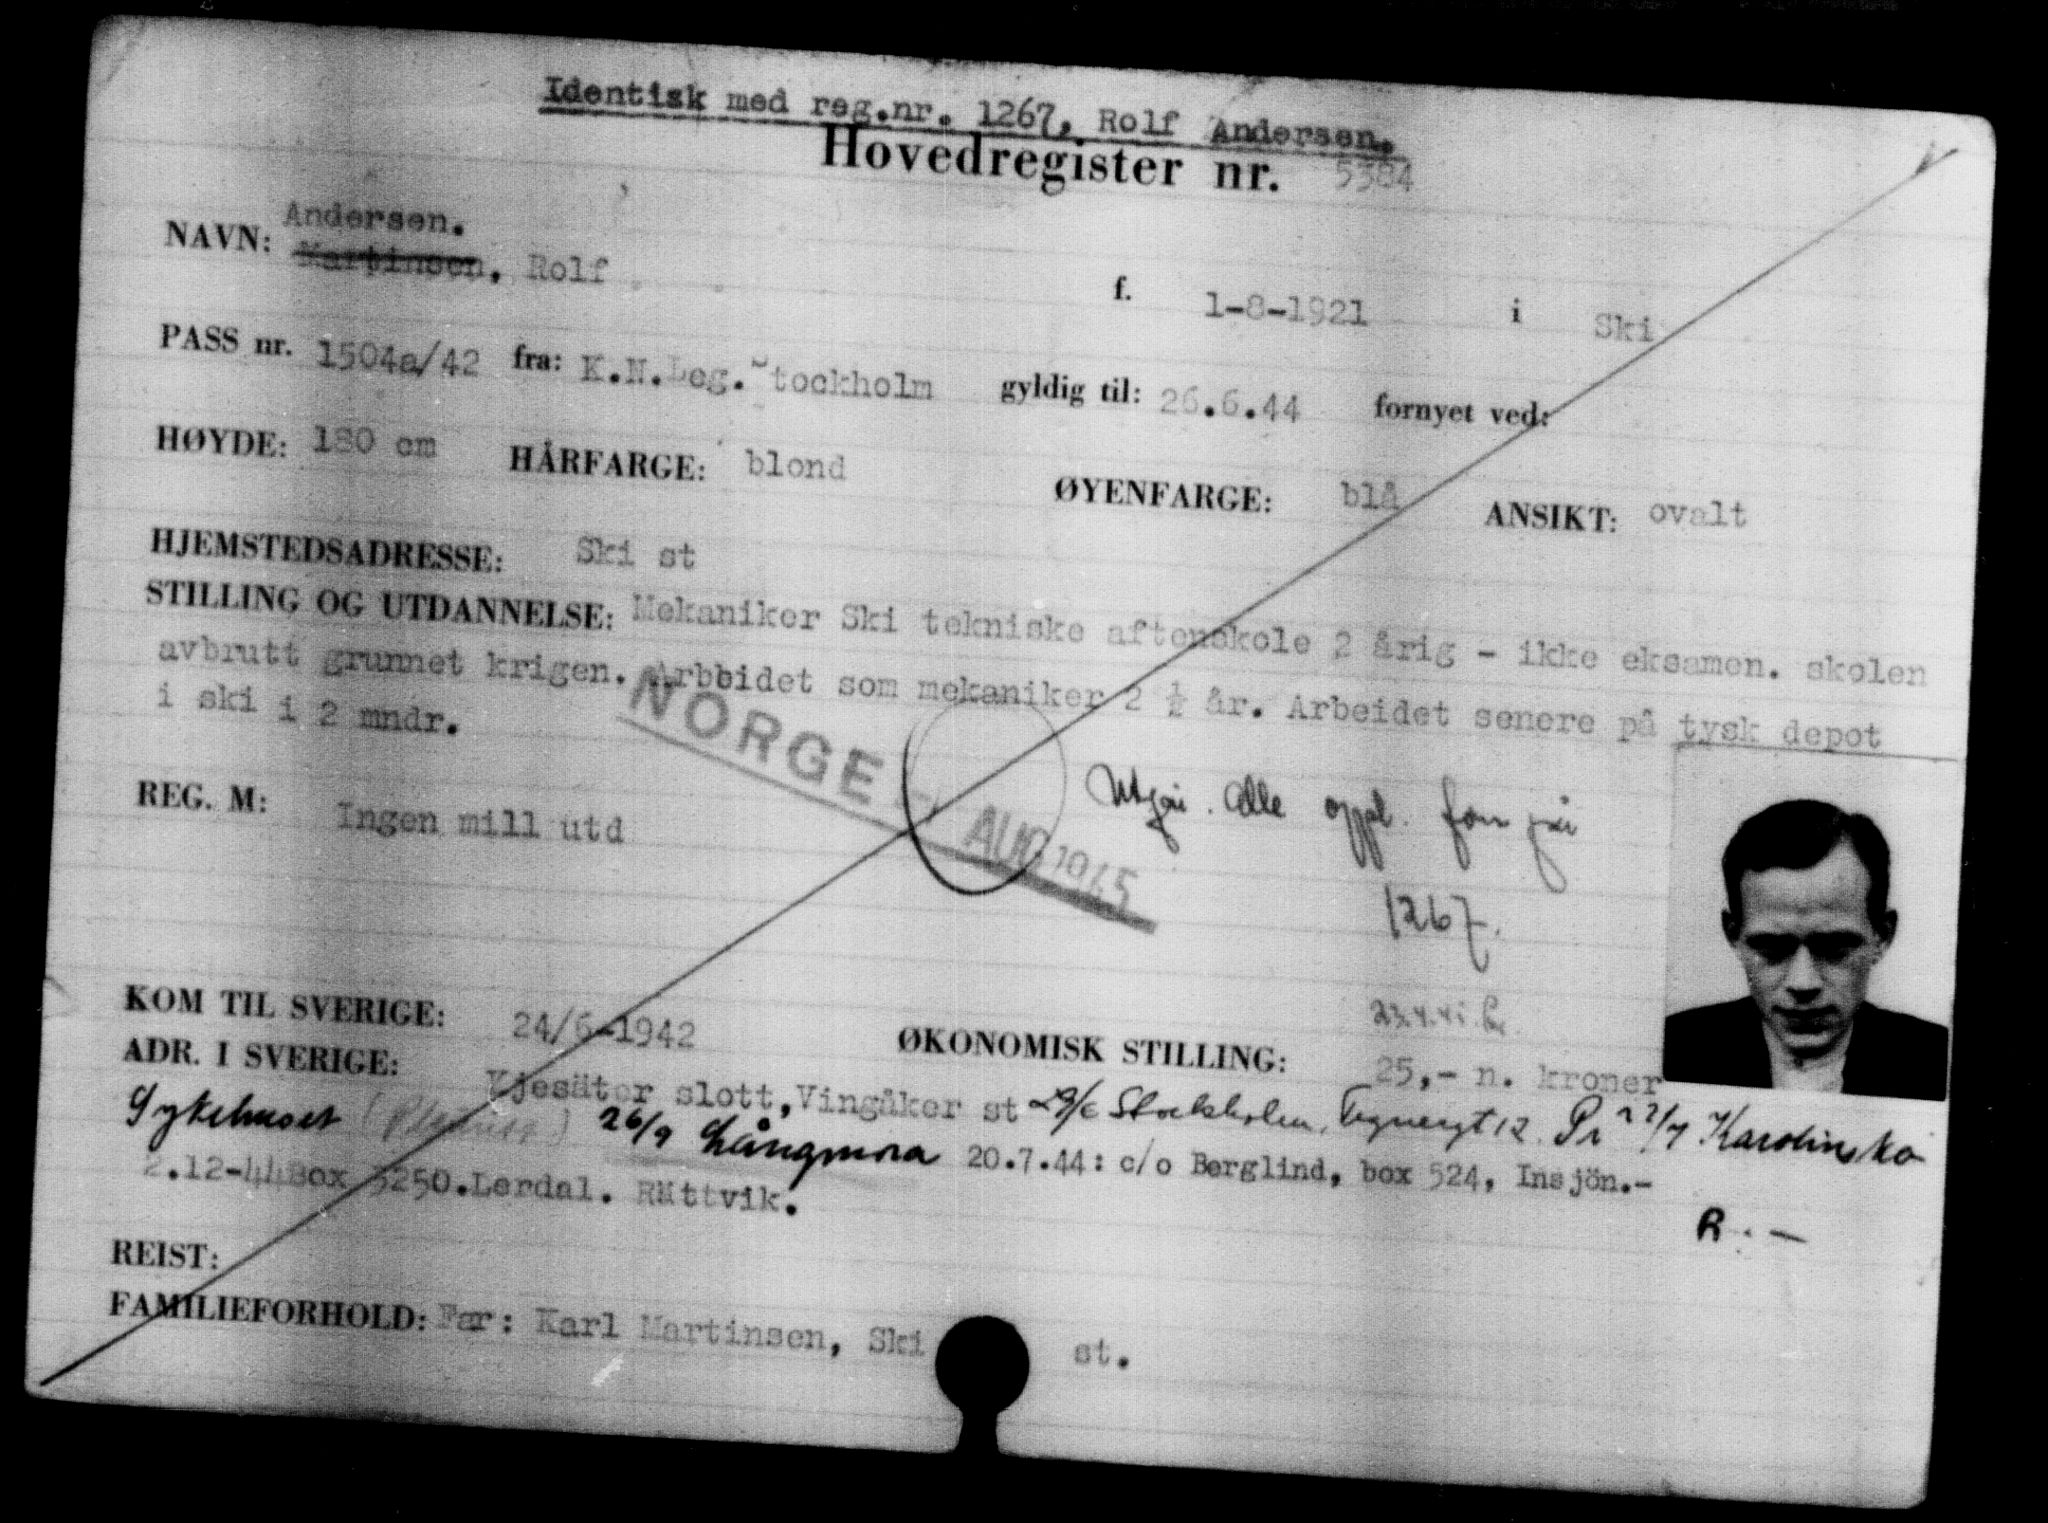 Identisk med reg.nr. 1267, Rolf Andersen.
Hovedregister nr. 5384
Andersen.
NAVN: Martinsen, Rolf f. 1-8-1921 i Ski
PASS nr. 1504a/42 fra: K.N.Leg. Stockholm gyldig til: 26.6.44 fornyet ved:
HØYDE: 180 cm HÅRFARGE: blond ØYENFARGE: blå ANSIKT: ovalt
HJEMSTEDSADRESSE: Ski st
STILLING OG UTDANNELSE: Mekaniker Ski tekniske aftenskole 2 årig - ikke eksamen. skolen
avbrutt grunnet krigen. Arbeidet som mekaniker 2 ½ år. Arbeidet senere på tysk depot
i ski i 2 mndr.
NORGE - AUG 1945
Utgår. Alle oppl. føres på
1267.
REG. M: Ingen mill utd
KOM TIL SVERIGE: 24/6-1942 ØKONOMISK STILLING: 25,- n. kroner
ADR. I SVERIGE: Kjesäter slott, Vingåker st 29/6 Stockholm, Tegnergt 12. Pr 22/7 Karolinska
Sykehuset 26/9 Långmora 20.7.44: c/o Berglind, box 524, Insjön.-
2.12-44 Box 5250. Lerdal. Rättvik.
R. -
REIST:
FAMILIEFORHOLD: Far: Karl Martinsen, Ski st.